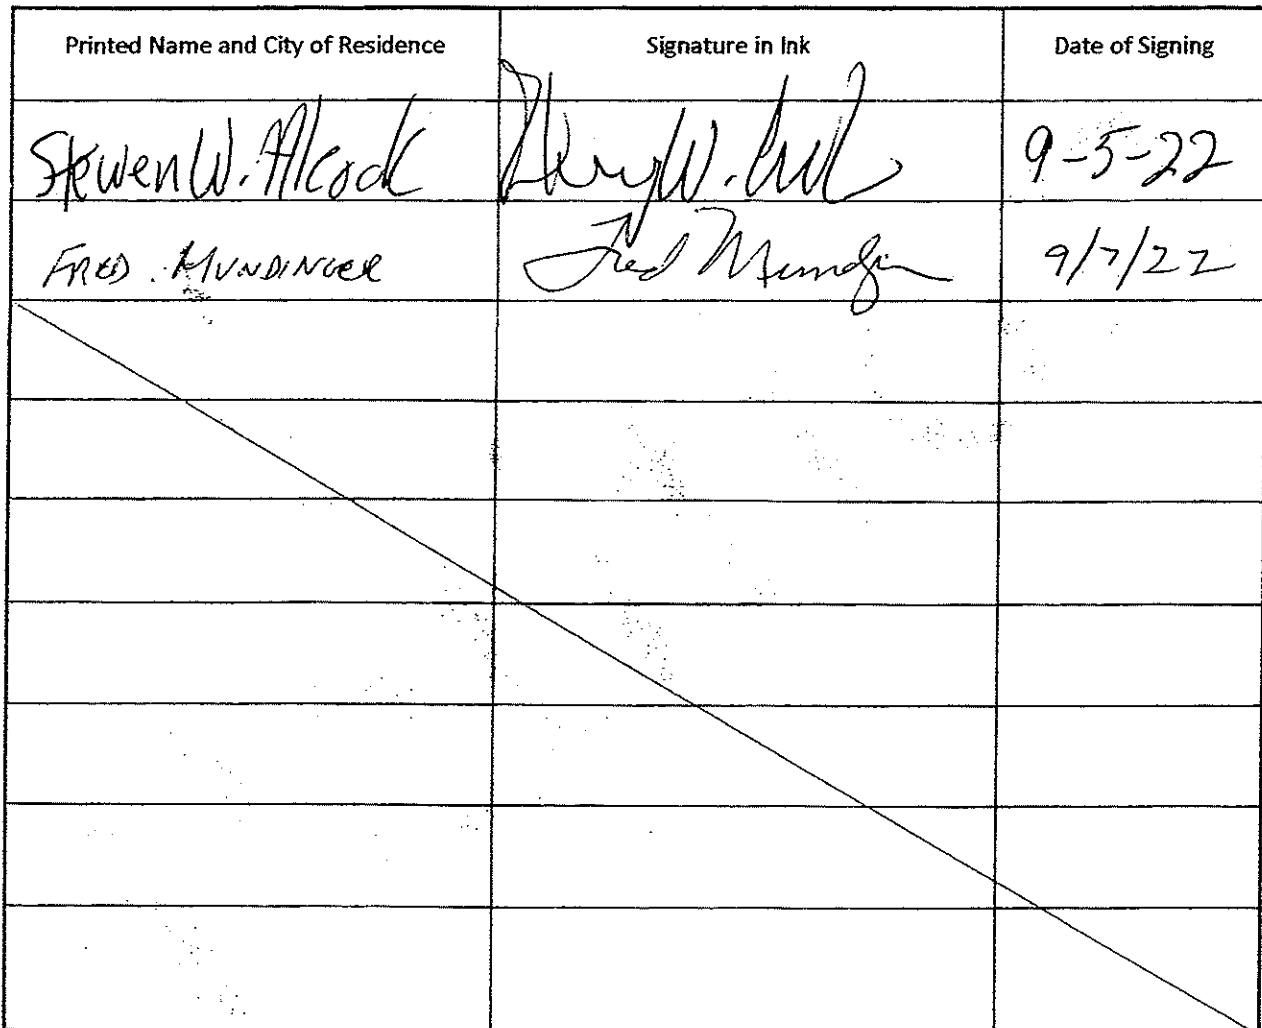 Printed Name and City of Residence Signature in Ink Date of Signing
Steven W. Alcock W. 9-5-22
FRED MUNDINGER Fred Mundinger 9/7/22